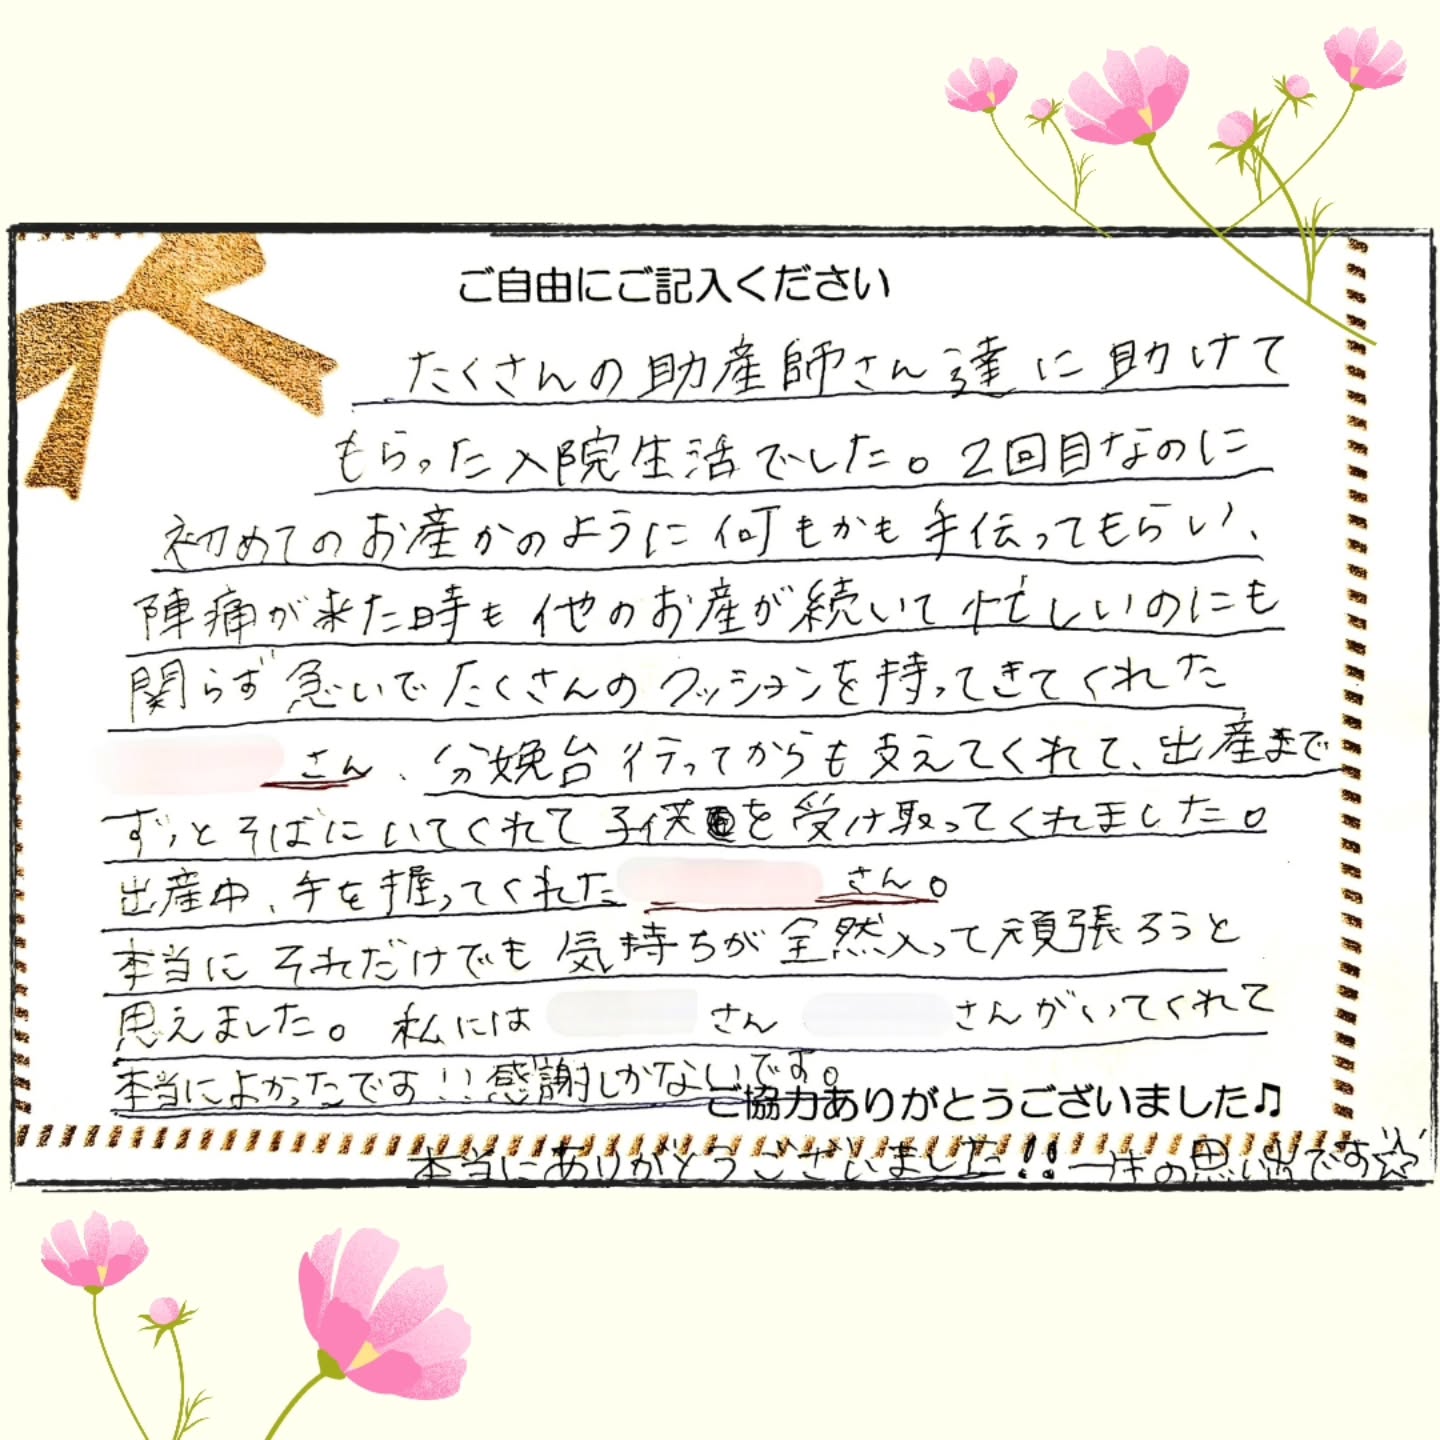 ご自由にご記入ください
たくさんの助産師さん達に助けて
もらった入院生活でした。2回目なのに
初めてのお産かのように何もかも手伝ってもらい、
陣痛が来た時も他のお産が続いて忙しいのにも
関らず急いでたくさんのクッションを持ってきてくれた
さん、分娩台行ってからも支えてくれて、出産まで
ずっとそばにいてくれて子供を受け取ってくれました。
出産中、手を握ってくれたさん。
本当にそれだけでも気持ちが全然入って頑張ろうと
思えました。私にはさんさんがいてくれて
本当によかったです!!感謝しかないです。
ご協力ありがとうございました♫
本当にありがとうございました!!一生の思い出です☆